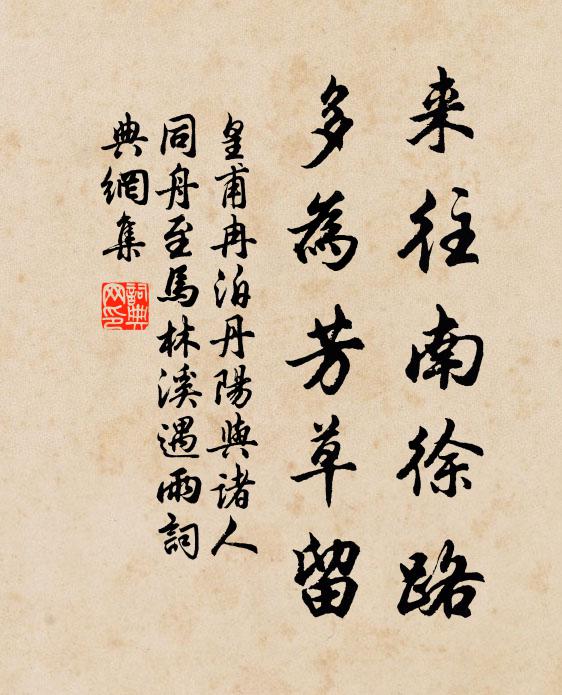 来往南徐路
多為芳草留
皇甫冉泊丹陽與諸人
同舟至馬林溪遇雨詞
典網集
詞典
网印